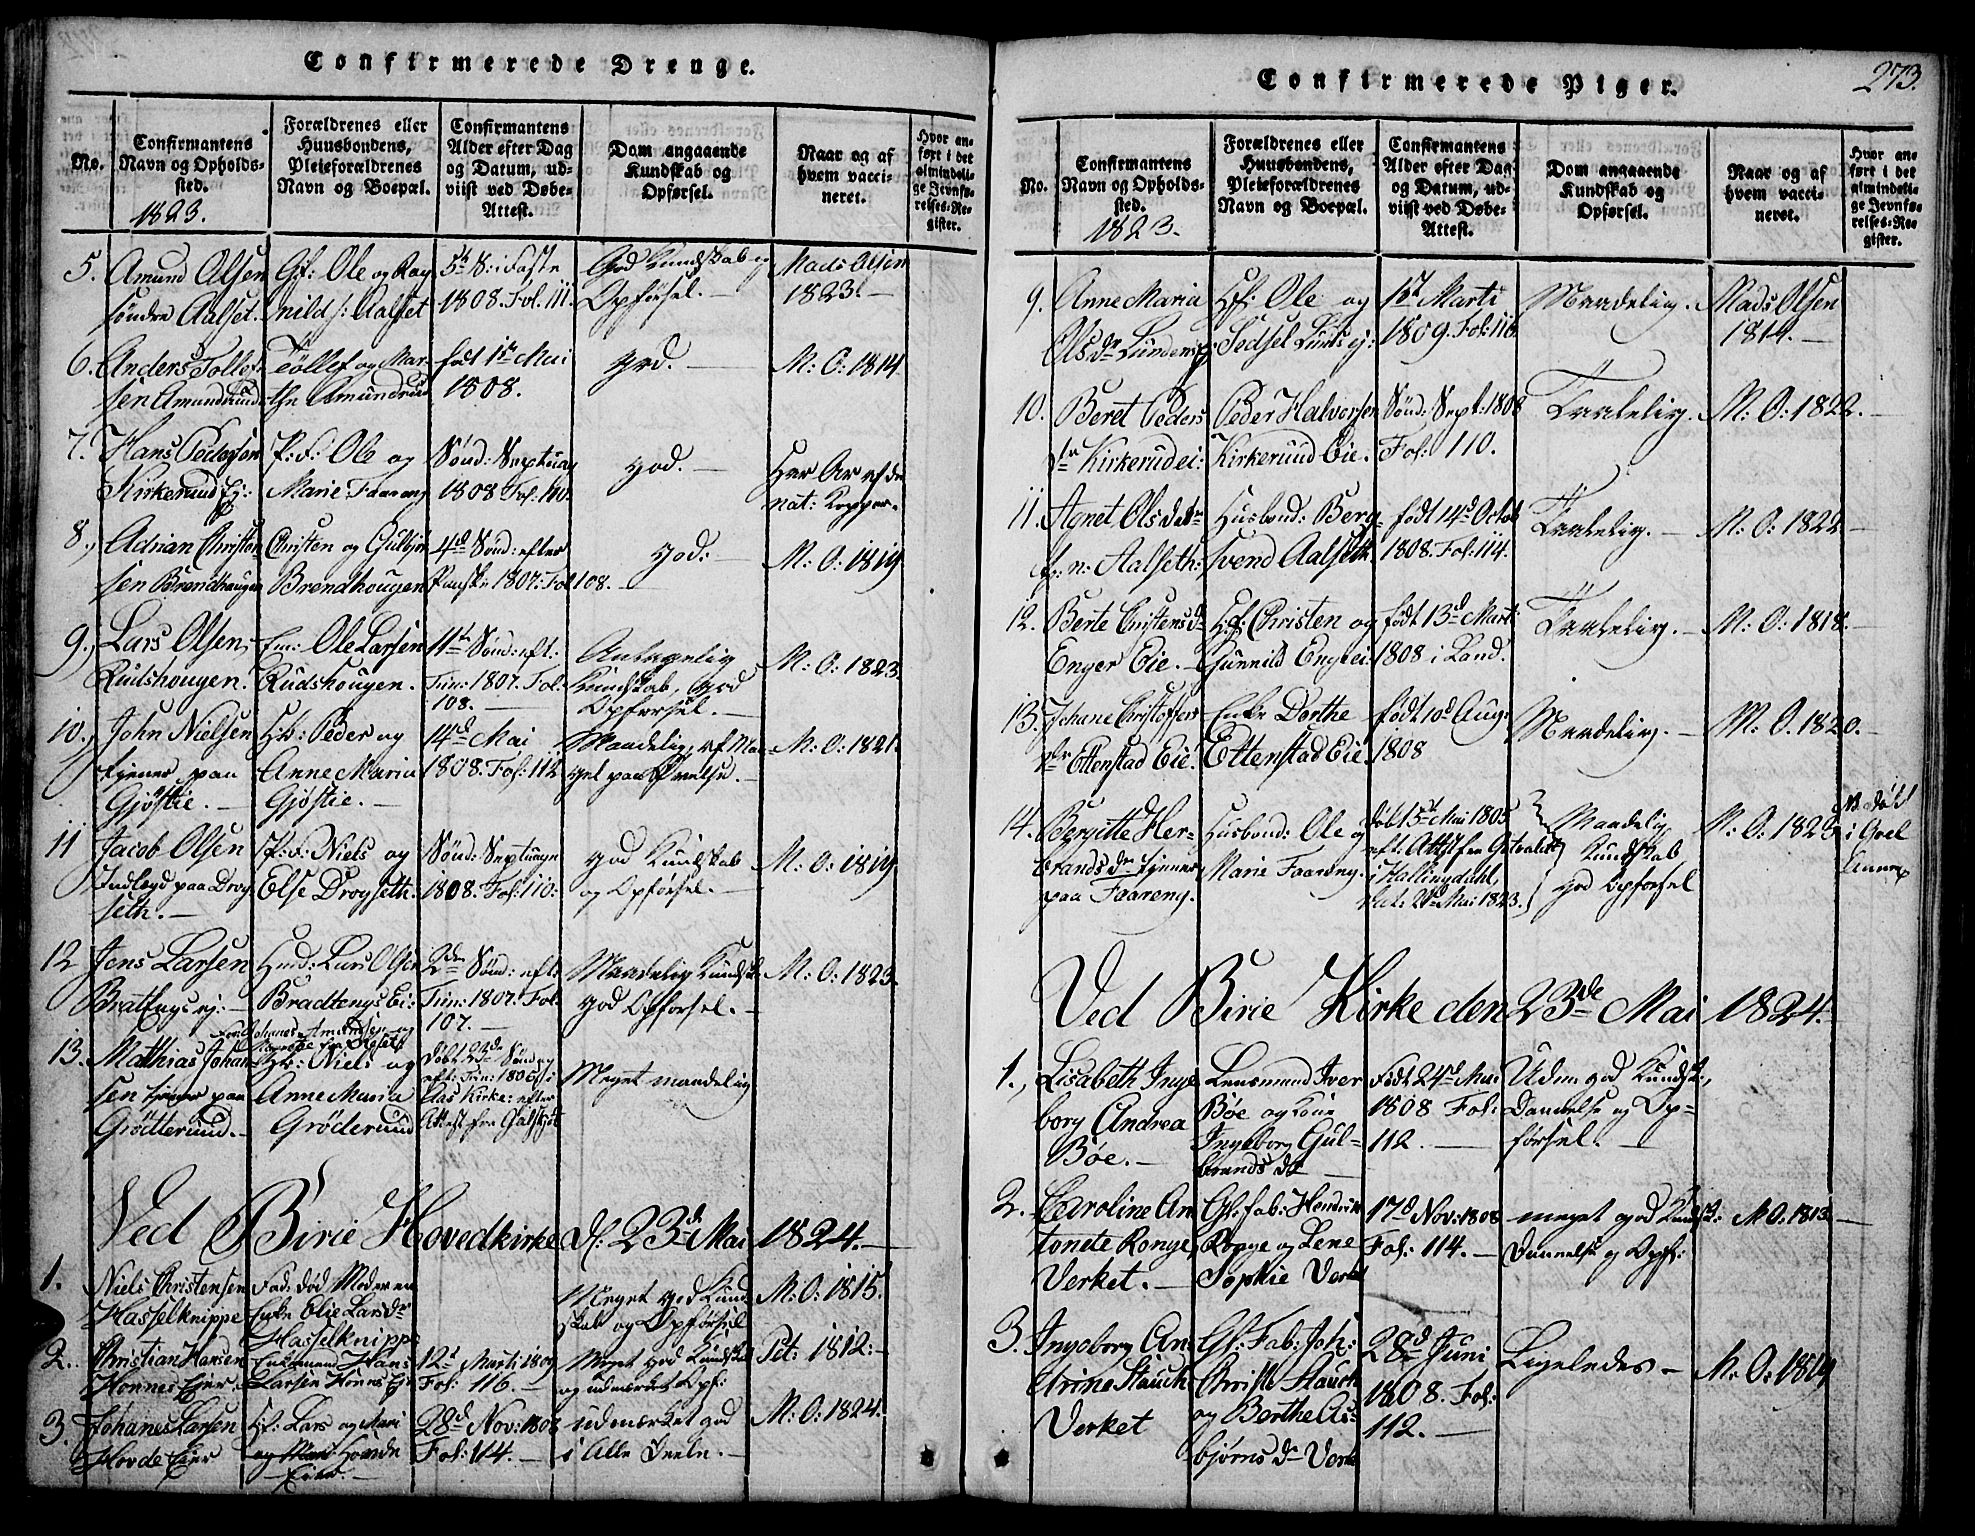 Confirmerede Drenge.
No.
Confirmantens
Navn og Opholds-
sted.
1823.
Forældrenes eller
Huusbondens,
Pleieforældrenes
Navn og Boepæl.
Confirmantens
Alder efter Dag
og Datum, ud-
viist ved Døbe-
Attest.
Dom angaaende
Kundskab og
Opførsel.
Naar og af
hvem vacci-
neret.
Hvor an-
ført i det
almindeli-
ge Jevnfø-
relses-Re-
gister.
5. Amund Olsen
søndre Aalset.
Gf: Ole og Rag
nild s: Aalset
5te S: i Faste
1808. Fol. 111.
God Kundskab og
Opførsel. —
Mads Olsen
1823. —
6. Anders Tollef-
sen Amundruud
Tøllef og Mar-
the Amundrud
født 1ste Mai
1808.
god. —
M: O: 1814
7. Hans Pedersen
Kirkeruud Ej:
P: f: Ole og
Marie Faareng
Sønd: Septuag
1808 Fol: 110.
god. —
Har Ar af de
nat: Kopper.
8. Adrian Christen-
sen Brendhougen
Christen og Gulbjør
Brendhougen
4de Sønd: efter
Paaske 1807: Fol 108.
god: —
M: O: 1819
9. Lars Olsen,
Rudshougen.
Em: Ole Larsen
Rudshougen.
11te Sønd: eft:
Trin: 1807. Fol:
108. —
Antagelig
Kundskab, god
Opførsel. —
M: O: 1823
10. John Nielsen
tjener paa
Gjøstie. —
Hb: Peder og
Anne Maria
Gjøstie. —
14d Mai
1808. Fol: 112
Maadelig, af Man-
gel paa Øvelse. —
M: O: 1821.
11 Jacob Olsen
Indlagd paa Drog
seth. —
P: f: Niels og
Else Drogseth.
Sønd: Septuage
1808. Fol: 110:
god Kundskab
og Opførsel. —
M: O: 1819
12 Jens Larsen
Bratengs ej: —
Huusd: Lars Olsen
Bradtengs Ei:
2den Sønd: eft:
Trin: 1807. Fol:
107. —
Maadelig Kundsk:
god Opførsel. —
M: O: 1823.
13. Mathias Johan-
sen tjener paa
Grøtteruud. —
Hb: Niels og
Anne Maria
Grøderuud
døbt 23de Sønd og
eft: Trin: 1806 i
Aas Kirke: efter
Attest fra
Meget maadelig
Ved Birie Hovedkirke d: 23de Mai 1824. —
1. Niels Christensen
Hasselknippe
Fad: død Moder en
Enke Elie Larsdr
Hasselknippe
Meget god Kund-
skab og Opførsel
M: O: 1815.
2. Christian Hansen
Honnes Ejer.
Enkemand Hans
Larsen Honns Eje
12t Marti 1809
Fol: 116. —
Meget god Kundskab
og udmærket Opf:
Pet: 1812: —
3. Johanes Larsen
Hovde Eier
Hf: Lars og Mari
og Mari Hovde
Eier —
28d Nov: 1808
Fol: 114. —
udmærket god
i Alle Deele. —
M: O: 1824.
Confirmerede Piger.
273.
No.
Confirmantens
Navn og Opholds-
sted.
1823.
Forældrenes eller
Huusbondens,
Pleieforældrenes
Navn og Boepæl.
Confirmantens
Alder efter Dag
og Datum, ud-
viist ved Døbe-
Attest.
Dom angaaende
Kundskab og
Opførsel.
Naar og af
hvem vacci-
neret.
Hvor an-
ført i det
almindeli-
ge Jevnfø-
relses-Re-
gister.
9. Anne Maria
Olsdr Lundens ej:
Hf: Ole og
Sidsel Lunds ej:
15d Marti
1809. Fol: 116.
Maadelig.
Mads Olsen
1814. —
10. Beret Peders
dr Kirkerud ei:
Peder Halvorsen
Kirkeruud Eie.
Sønd: Sept: 1808
Fol: 110.
Taalelig.
M: O: 1822. —
11. Agnet Olsdatr
n: Aalseth:
Husbond: Berg-
svend Aalseth
født 14d Octob
1808. Fol: 114.
Taalelig. —
M: O: 1822 —
12. Berte Christensdr
Enger Eie. —
Hf: Christen og
Gunnild Eng: ei:
født 13d Marti
1808 i Land.
Taalelig. —
M: O: 1818. —
13. Johane Christoffers
dr Ettenstad Eie.
Enke Dorthe
Ettenstad Eie.
født 10d Aug:
1808
Maadelig. —
M: O. 1820. —
14. Bergitte Her-
brandsdr tjener
paa Faareng.
Husbond: Ole og
Marie Faareng.
døbt 15de Mai 1805
eft: Attest fra
i Hallingdahl,
dat: 2den Mai 1823.
Maadelig
Kundskab
god Opførsel
M: O: 1823
Ved Birie Kirke den 23de Mai 1824.
1. Lisabeth Inge
borg Andrea
Bøe. —
Lensmand Iver
Bøe og Kone
Ingeborg Gul-
brandsdr —
Født 24d Mai
1808 Fol:
112. —
Udm: god Kundsk:,
Dannelse og Op-
førsel. —
2. Caroline An
tonete Ronge
Verket. —
Gf: Fab: Hendrik
Ronge og Lene
Sophie Verket
17d Nov: 1808
Fol: 114. —
meget god Kundsk:
Dannelse og Opf:
M O: 1813 —
3. Ingeborg An
trine Stauch
Verket
Gf: Fab: Joh:
Christ: Stauch
og Berthe As-
bjørnsdr Verket
28d Juni
1808. Fol:
112. —
Ligeledes —
M: O: 1819